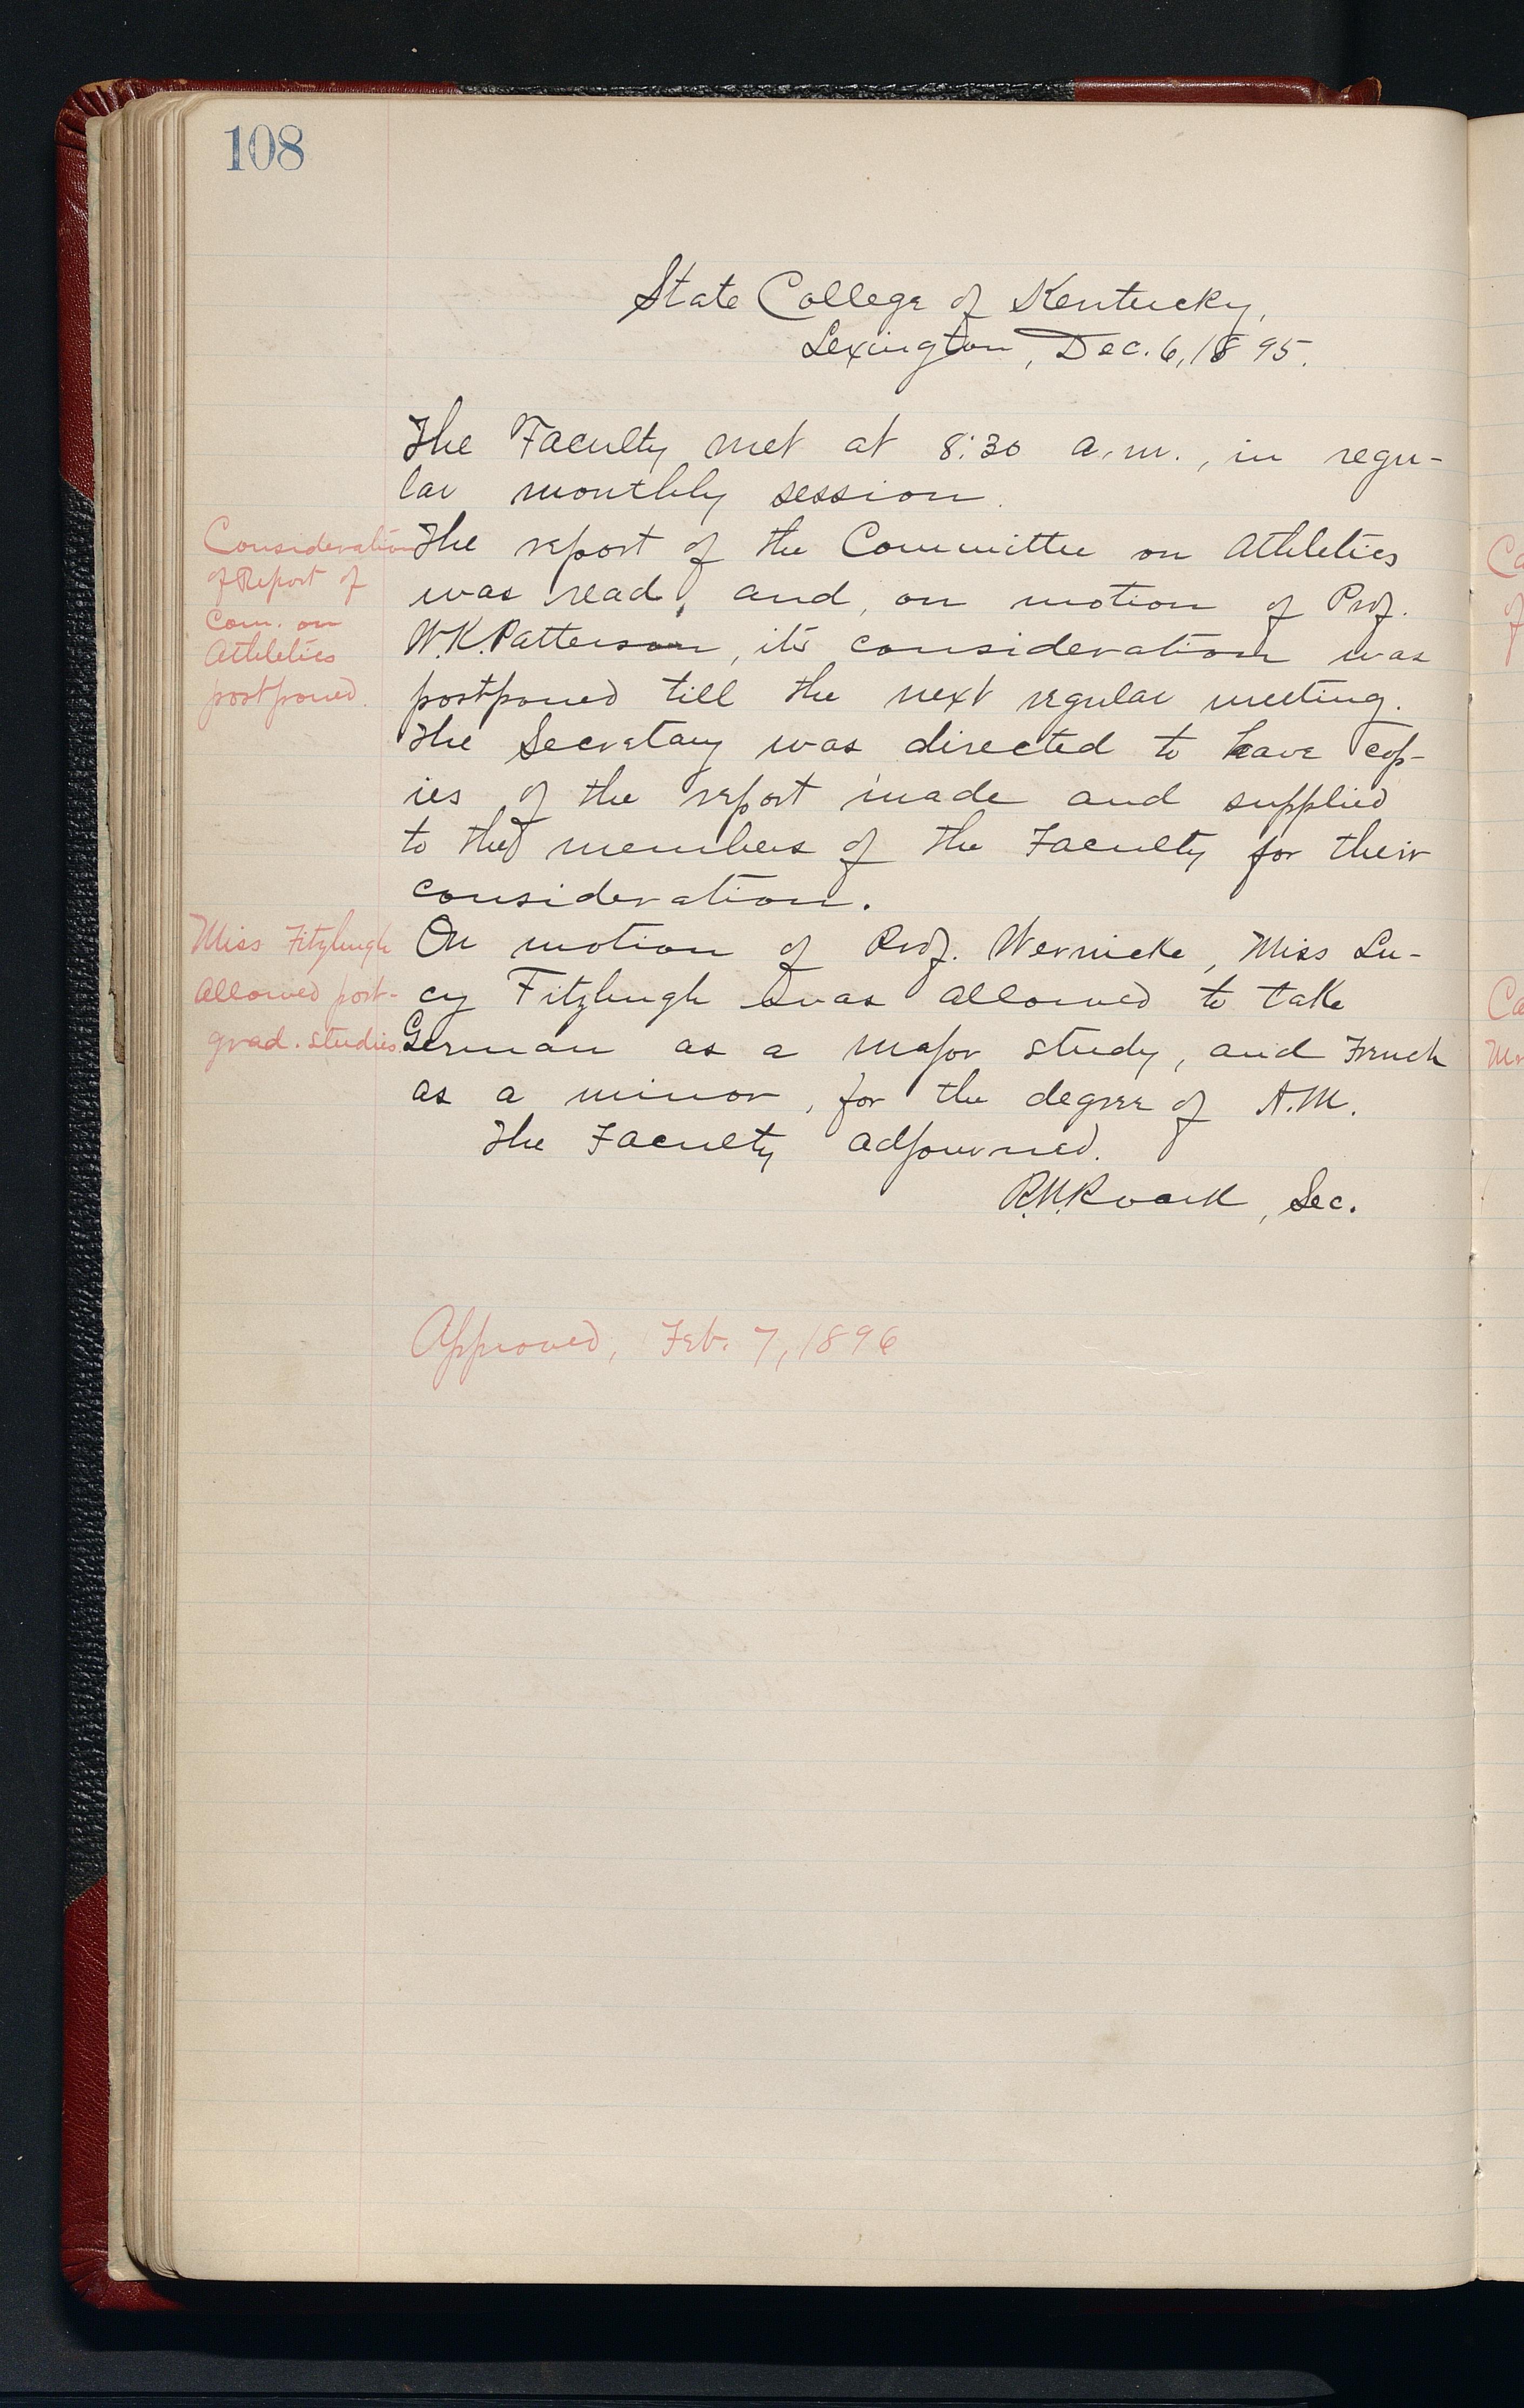 108
State College of Kentucky,
Lexington, Dec. 6, 1895.
The Faculty met at 8:30 a.m., in regu-
lar monthly session.
Consideration
of Report of
Com. on
Athletics
postponed.
The report of the Committee on Athletics
was read, and, on motion of Prof.
W.K. Patterson, its consideration was
postponed till the next regular meeting.
The Secretary was directed to have cop-
ies of the report made and supplied
to the members of the Faculty for their
consideration.
Miss Fitzhugh
allowed post-
grad. studies
On motion of Prof. Wernicke, Miss Lu-
cy Fitzhugh was allowed to take
German as a major study, and French
as a minor, for the degree of A.M.
The Faculty adjourned.
R.N. Roark, Sec.
Approved, Feb. 7, 1896
Ca
of
Ca